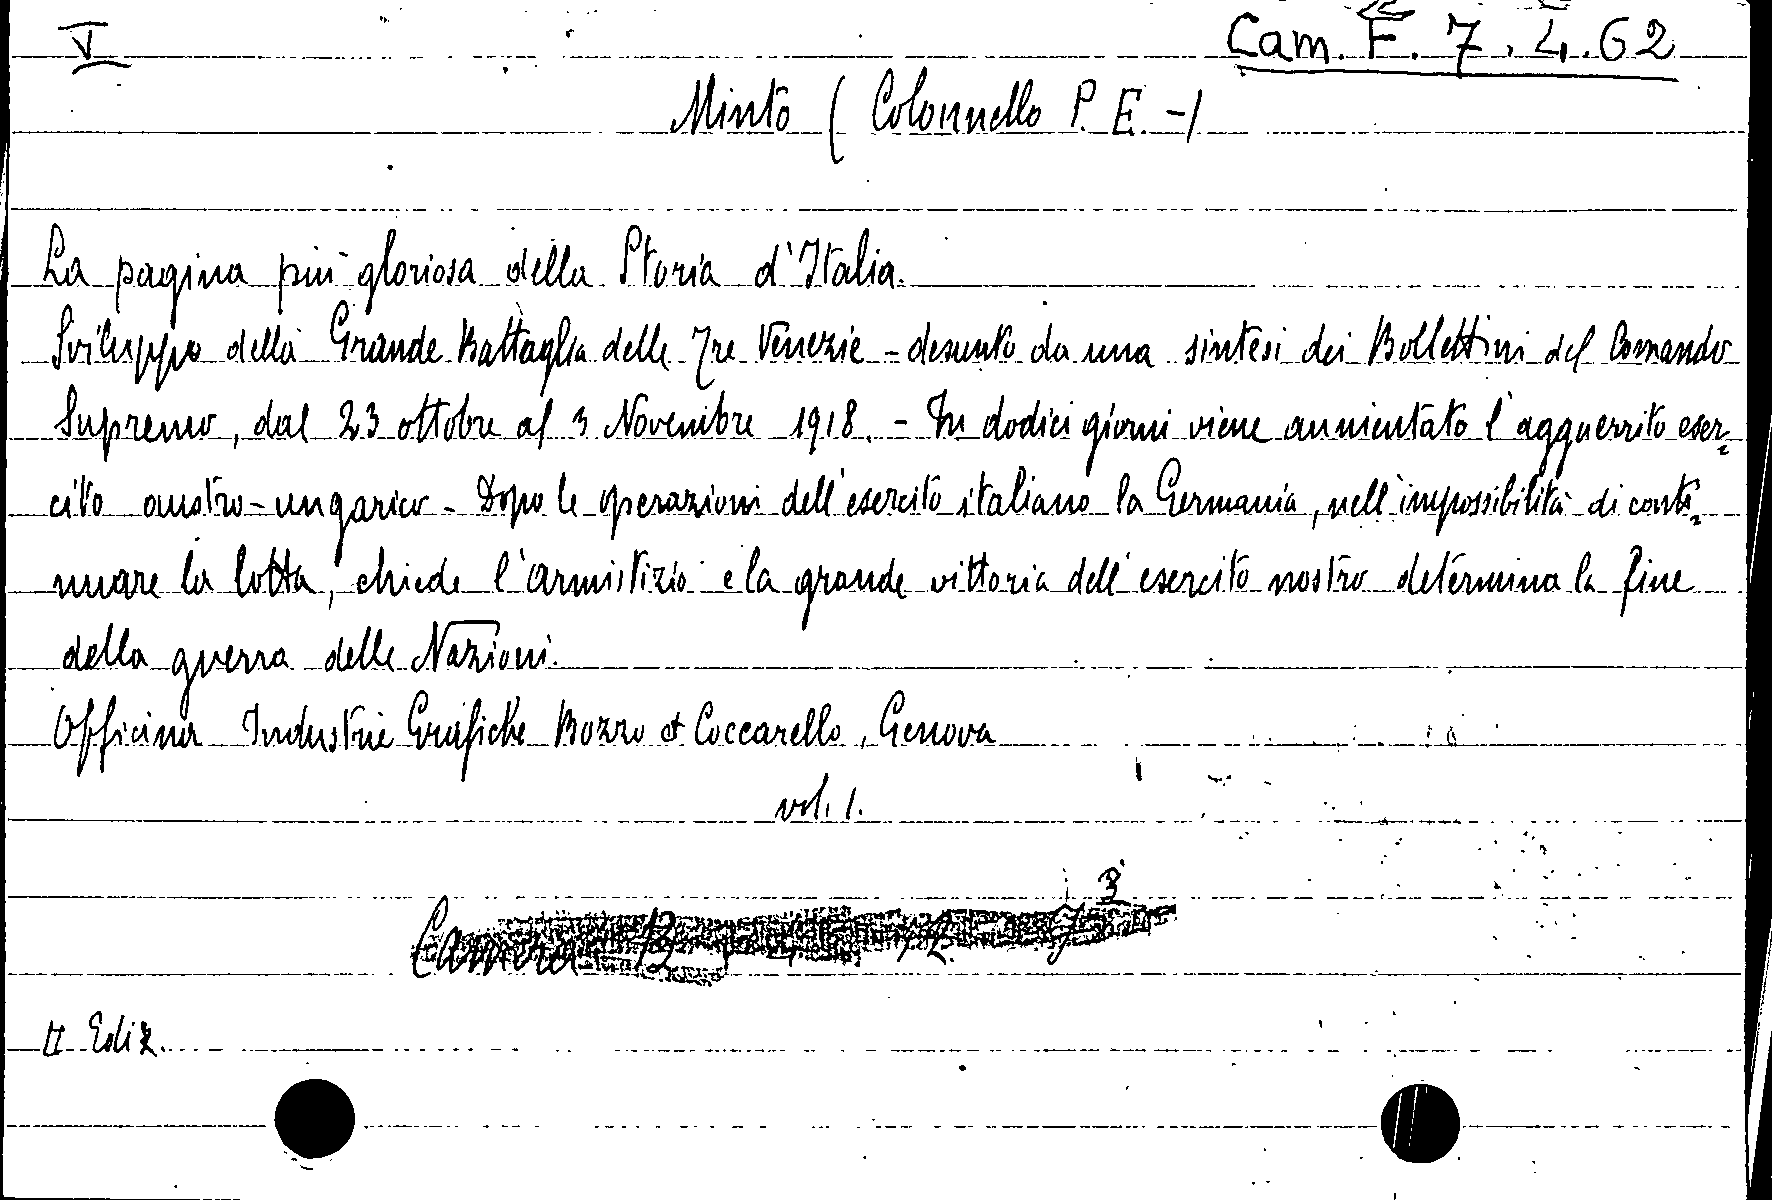 V
Cam. F. 7. 4. 62
Minto (Colonnello P. E. -)
La pagina più gloriosa della Storia d'Italia.
Sviluppo della Grande Battaglia delle Tre Venezie - desunto da una sintesi dei Bollettini del Comando
Supremo, dal 23 ottobre al 3 Novembre 1918. - In dodici giorni viene annientato l'agguerrito eser-
cito austro-ungarico - Dopo le operazioni dell'esercito italiano la Germania, nell'impossibilità di conti-
nuare la lotta, chiede l'armistizio e la grande vittoria dell'esercito nostro determina la fine
della guerra delle Nazioni.
Officina Industrie Grafiche Bozzo & Coccarello, Genova
vol. 1.
Camera
II Ediz.